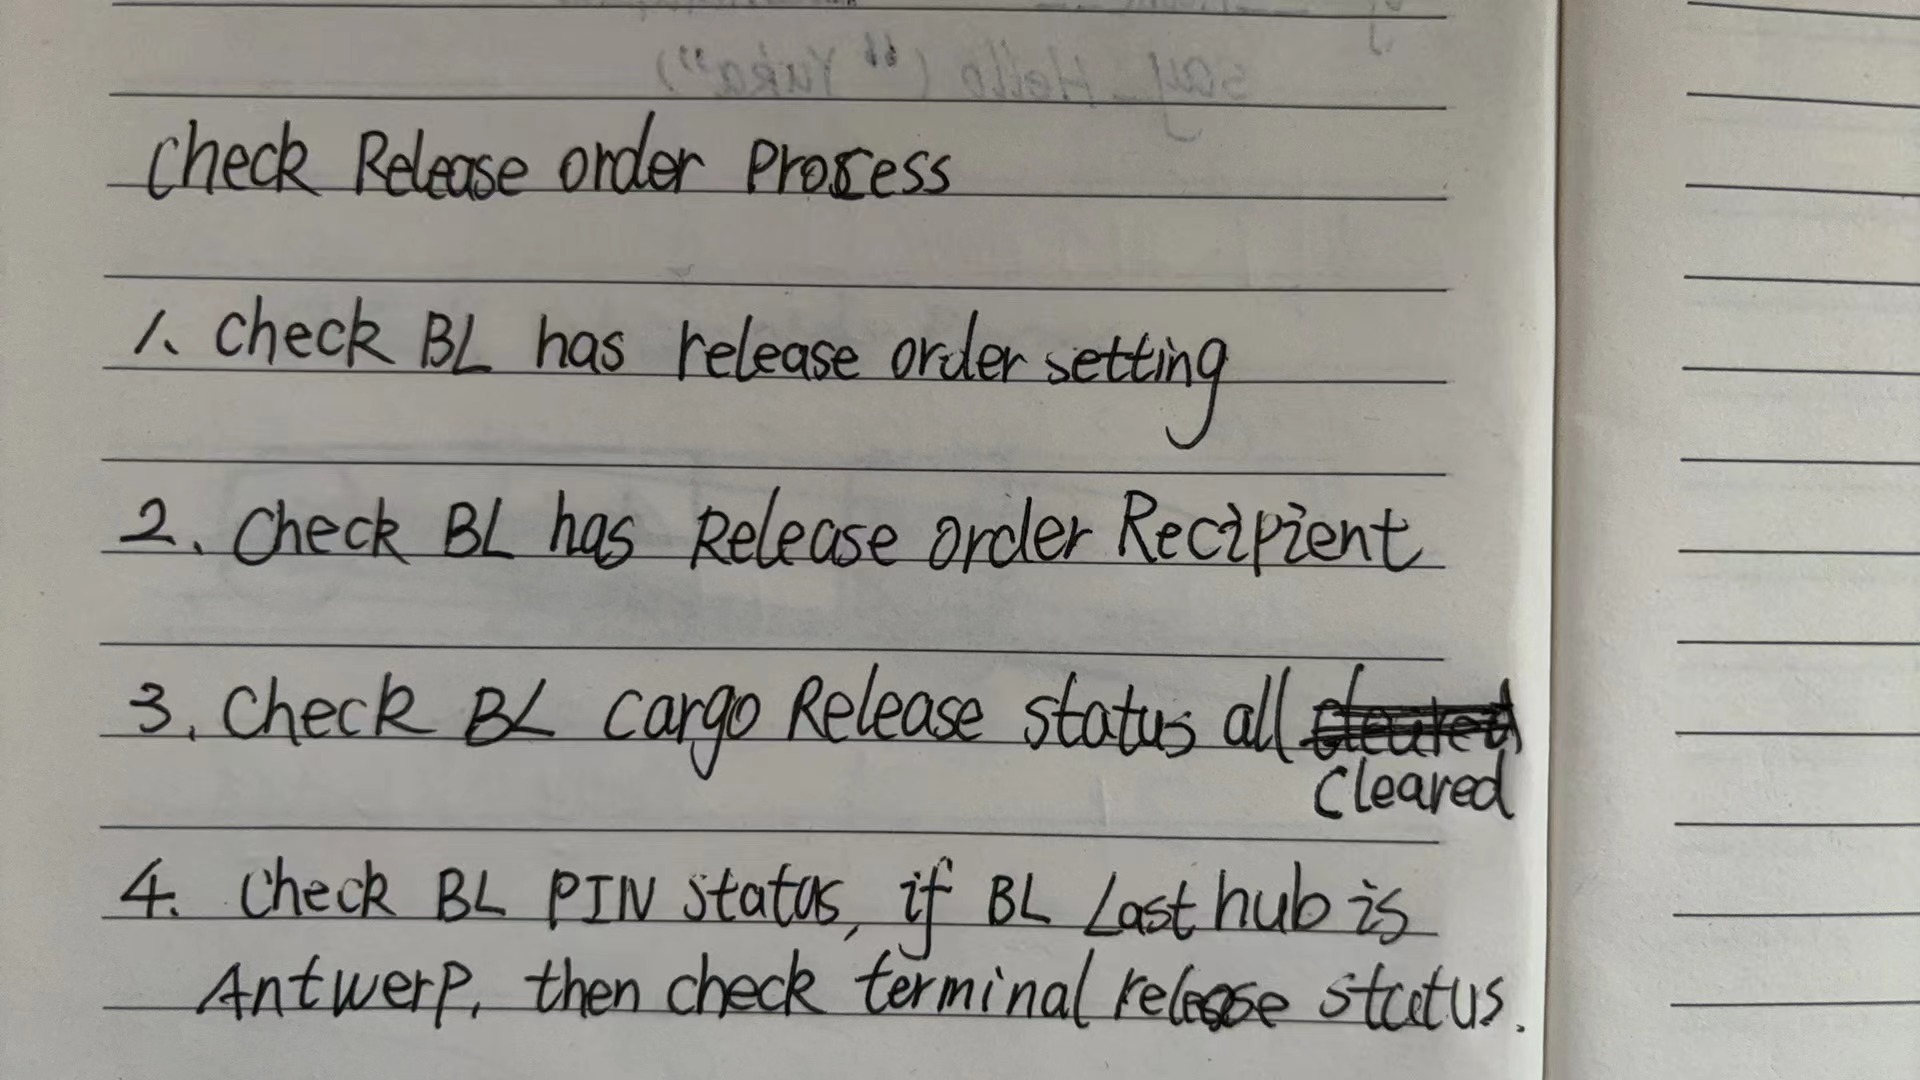 say_Hello ("Yuka")
Check Release order Process
1. Check BL has release order setting
2. Check BL has Release Order Recipient
3. Check BL Cargo Release status all
Cleared
4. Check BL PIN status, if BL Last hub is
Antwerp, then check terminal release status.